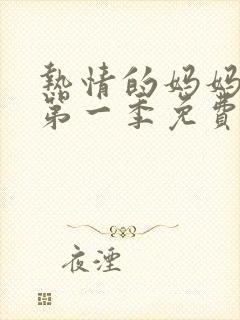 熱情的妈妈
第一季免費
夜湮